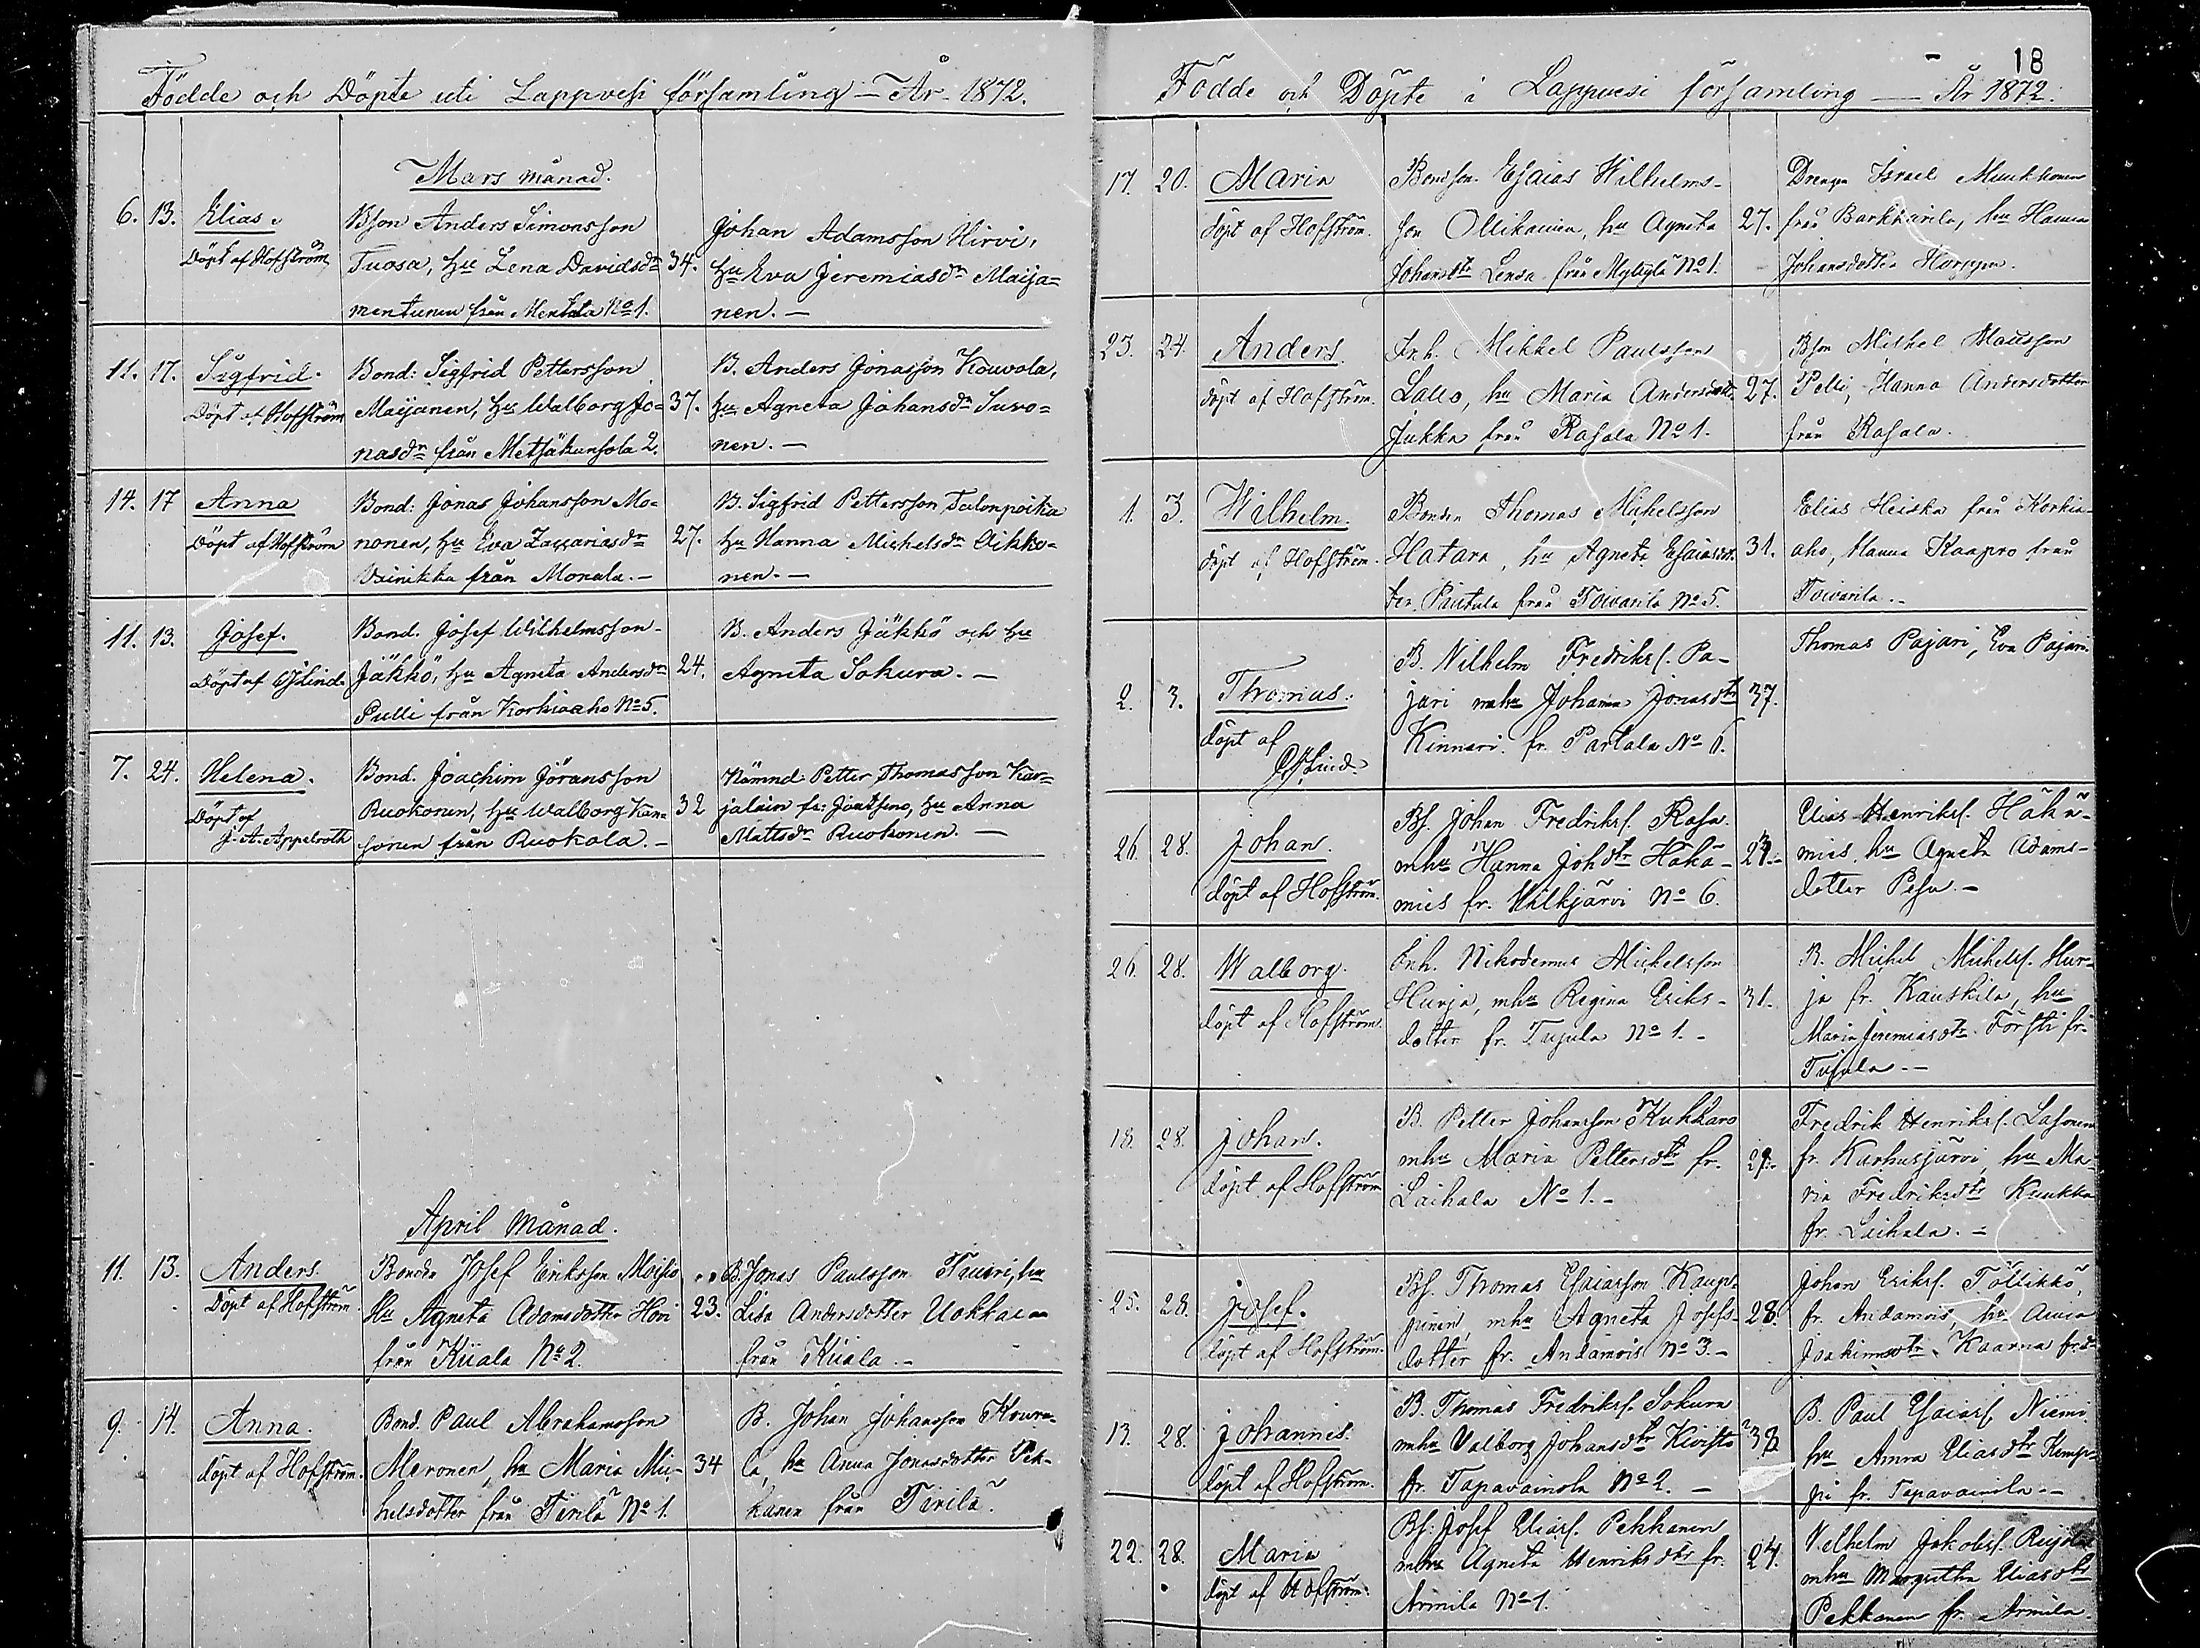 Födde och Döpte uti Lappvesi församling – År 1872.
Mars månad.
6. 13. Elias.
Döpt af Hofström
Bson Anders Simonsson
Tuosa, hu Lena Davidsdr
mentunen från Mentala No 1.
34.
Johan Adamsson Hirvi,
hu Eva Jeremiasdr Maija=
nen. —
11. 17. Sigfrid.
Döpt af Hofström
Bond: Sigfrid Pettersson
Maijanen, hu Walborg Jo=
nasdr från Metsäkunsola 2.
37.
B. Anders Jonasson Kouvola,
hu Agneta Johansdr Suvo=
nen. —
14. 17 Anna
Döpt af Hofström
Bond: Jonas Johansson Mo=
nonen, hu Eva Zacariasdr
Vainikka från Monala. —
27.
B. Sigfrid Pettersson Talonpoika
hu Hanna Michelsdr Aikko=
nen. —
11. 13. Josef.
Döpt af Öflind.
Bond. Josef Wilhelmsson
Jäkkö, hu Agneta Andersdr
Pulli från Korkiaaho No 5.
24.
B. Anders Jäkkö och hu
Agneta Sokura. —
7. 24. Helena.
Döpt af
J. A. Appelroth
Bond. Joachim Jöransson
Ruokonen, hu Walborg Kan=
sonen från Ruokola. —
32
Nämnd. Petter Thomasson Kar=
jalain fr: Joutseno, hu Anna
Mattsdr Ruokonen. —
April månad.
11. 13. Anders.
Döpt af Hofström
Bonden Josef Eriksson Moisio
hu Agneta Adamsdotter Hovi
från Kiiala No 2.
23.
B. Jonas Paulsson Tauri, hu
Lisa Andersdotter Uokkaen
från Kiiala. —
9. 14. Anna.
döpt af Hofström
Bond. Paul Abrahamsson
Meronen, hu Maria Mi-
helsdotter från Tirilä No 1.
34
B. Johan Johansson Kouvo-
la, hu Anna Jonasdotter Pek-
kanen från Tirilä.
18
Födde och Döpte i Lappvesi församling — År 1872.
17. 20. Maria
döpt af Hofström.
Bondson. Esaias Wilhelms-
son Ollikainen, hu Agneta
Johansdtr Lensu från Myllylä No 1.
27.
Drengen Israel Muukkonen
från Barkkarila, hu Hanna
Johansdotter Horppu.
23. 24. Anders.
döpt af Hofström.
Inh. Mikkel Paulsson
Lallo, hu Maria Andersdotter
Jukka från Rasala No 1.
27.
Bson Mikkel Mattsson
Pelli, Hanna Andersdotter
från Rasala.
1. 3. Wilhelm.
döpt af Hofström.
Bonden Thomas Michelsson
Hatara, hu Agneta Esaiasdot
ter. Pautula från Toivarila No 5.
31.
Elias Heiska från Korkia-
aho, Hanna Kaapro från
Toivarila. —
2. 3. Thomas.
döpt af
Öflind.
B. Wilhelm Fredriks. Pa-
jari mhu Johanna Jonasdtr
Kinnari. fr. Partala No 6.
37.
Thomas Pajari, Eva Pajari
26. 28. Johan.
döpt af Hofström.
Bs. Johan Fredriks. Rasa
mhu Hanna Johdtr Häkä-
mies fr. Hälkjärvi No 6.
Elias Henriks. Häkä-
mies. hu Agneta Adams-
dotter Pesu. —
26. 28. Walborg.
döpt af Hofström.
Inh. Nikodemus Michelsson
Hurja, mhu Regina Eriks-
dotter fr. Tujula No 1. -
31.
B. Michel Michels. Hur-
ja fr. Kauskila, hu
Maria Jeremiasdtr Försti fr.
Tujula. —
18. 28. Johan.
döpt af Hofström
B. Petter Johansson Kukkaro
mhu Maria Pettersdtr fr.
Laihala No 1. -
Fredrik Henriks. Lasonen
fr. Karhusjärvi, hu Ma-
ria Fredriksdtr Kuukka
fr. Laihala. —
25. 28. Josef.
döpt af Hofström.
Bs. Thomas Esaiasson Kaup-
pinen, mhu Agneta Josefs-
dotter fr. Andamois No 3. -
28.
Johan Eriks. Töllikkö,
fr. Andamois, hu Anna
Joakimsdtr Kaarna
13. 28. Johannes.
döpt af Hofström.
B. Thomas Fredriks. Sokura
mhu Valborg Johansdtr Kivistö
fr. Tapavainola No 2. -
B. Paul Esaias. Niemi
hu Anna Eliasdtr Kemp-
pi fr. Tapavainola —
22. 28. Maria
döpt af Hofström.
Bs. Josef Elias. Pekkanen
mhu Agneta Henriksdtr fr.
Armila No 1.
24.
Vilhelm Jakobs.
mhu Margretha Eliasdtr
Pekkanen fr. Armila.